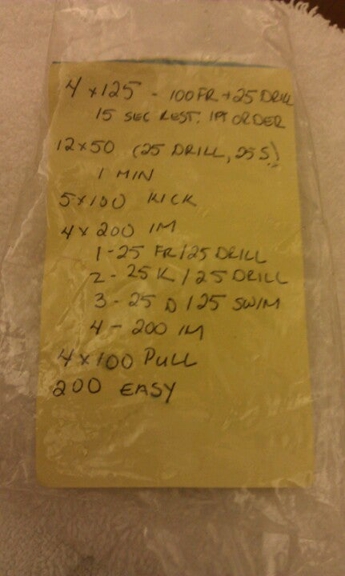 4 x 125 - 100 FR + 25 DRILL
15 SEC REST. IM ORDER
12 x 50 (25 DRILL, 25 S)
1 MIN
5 x 100 KICK
4 x 200 IM
1 - 25 FR / 25 DRILL
2 - 25 K / 25 DRILL
3 - 25 D / 25 SWIM
4 - 200 IM
4 x 100 PULL
200 EASY